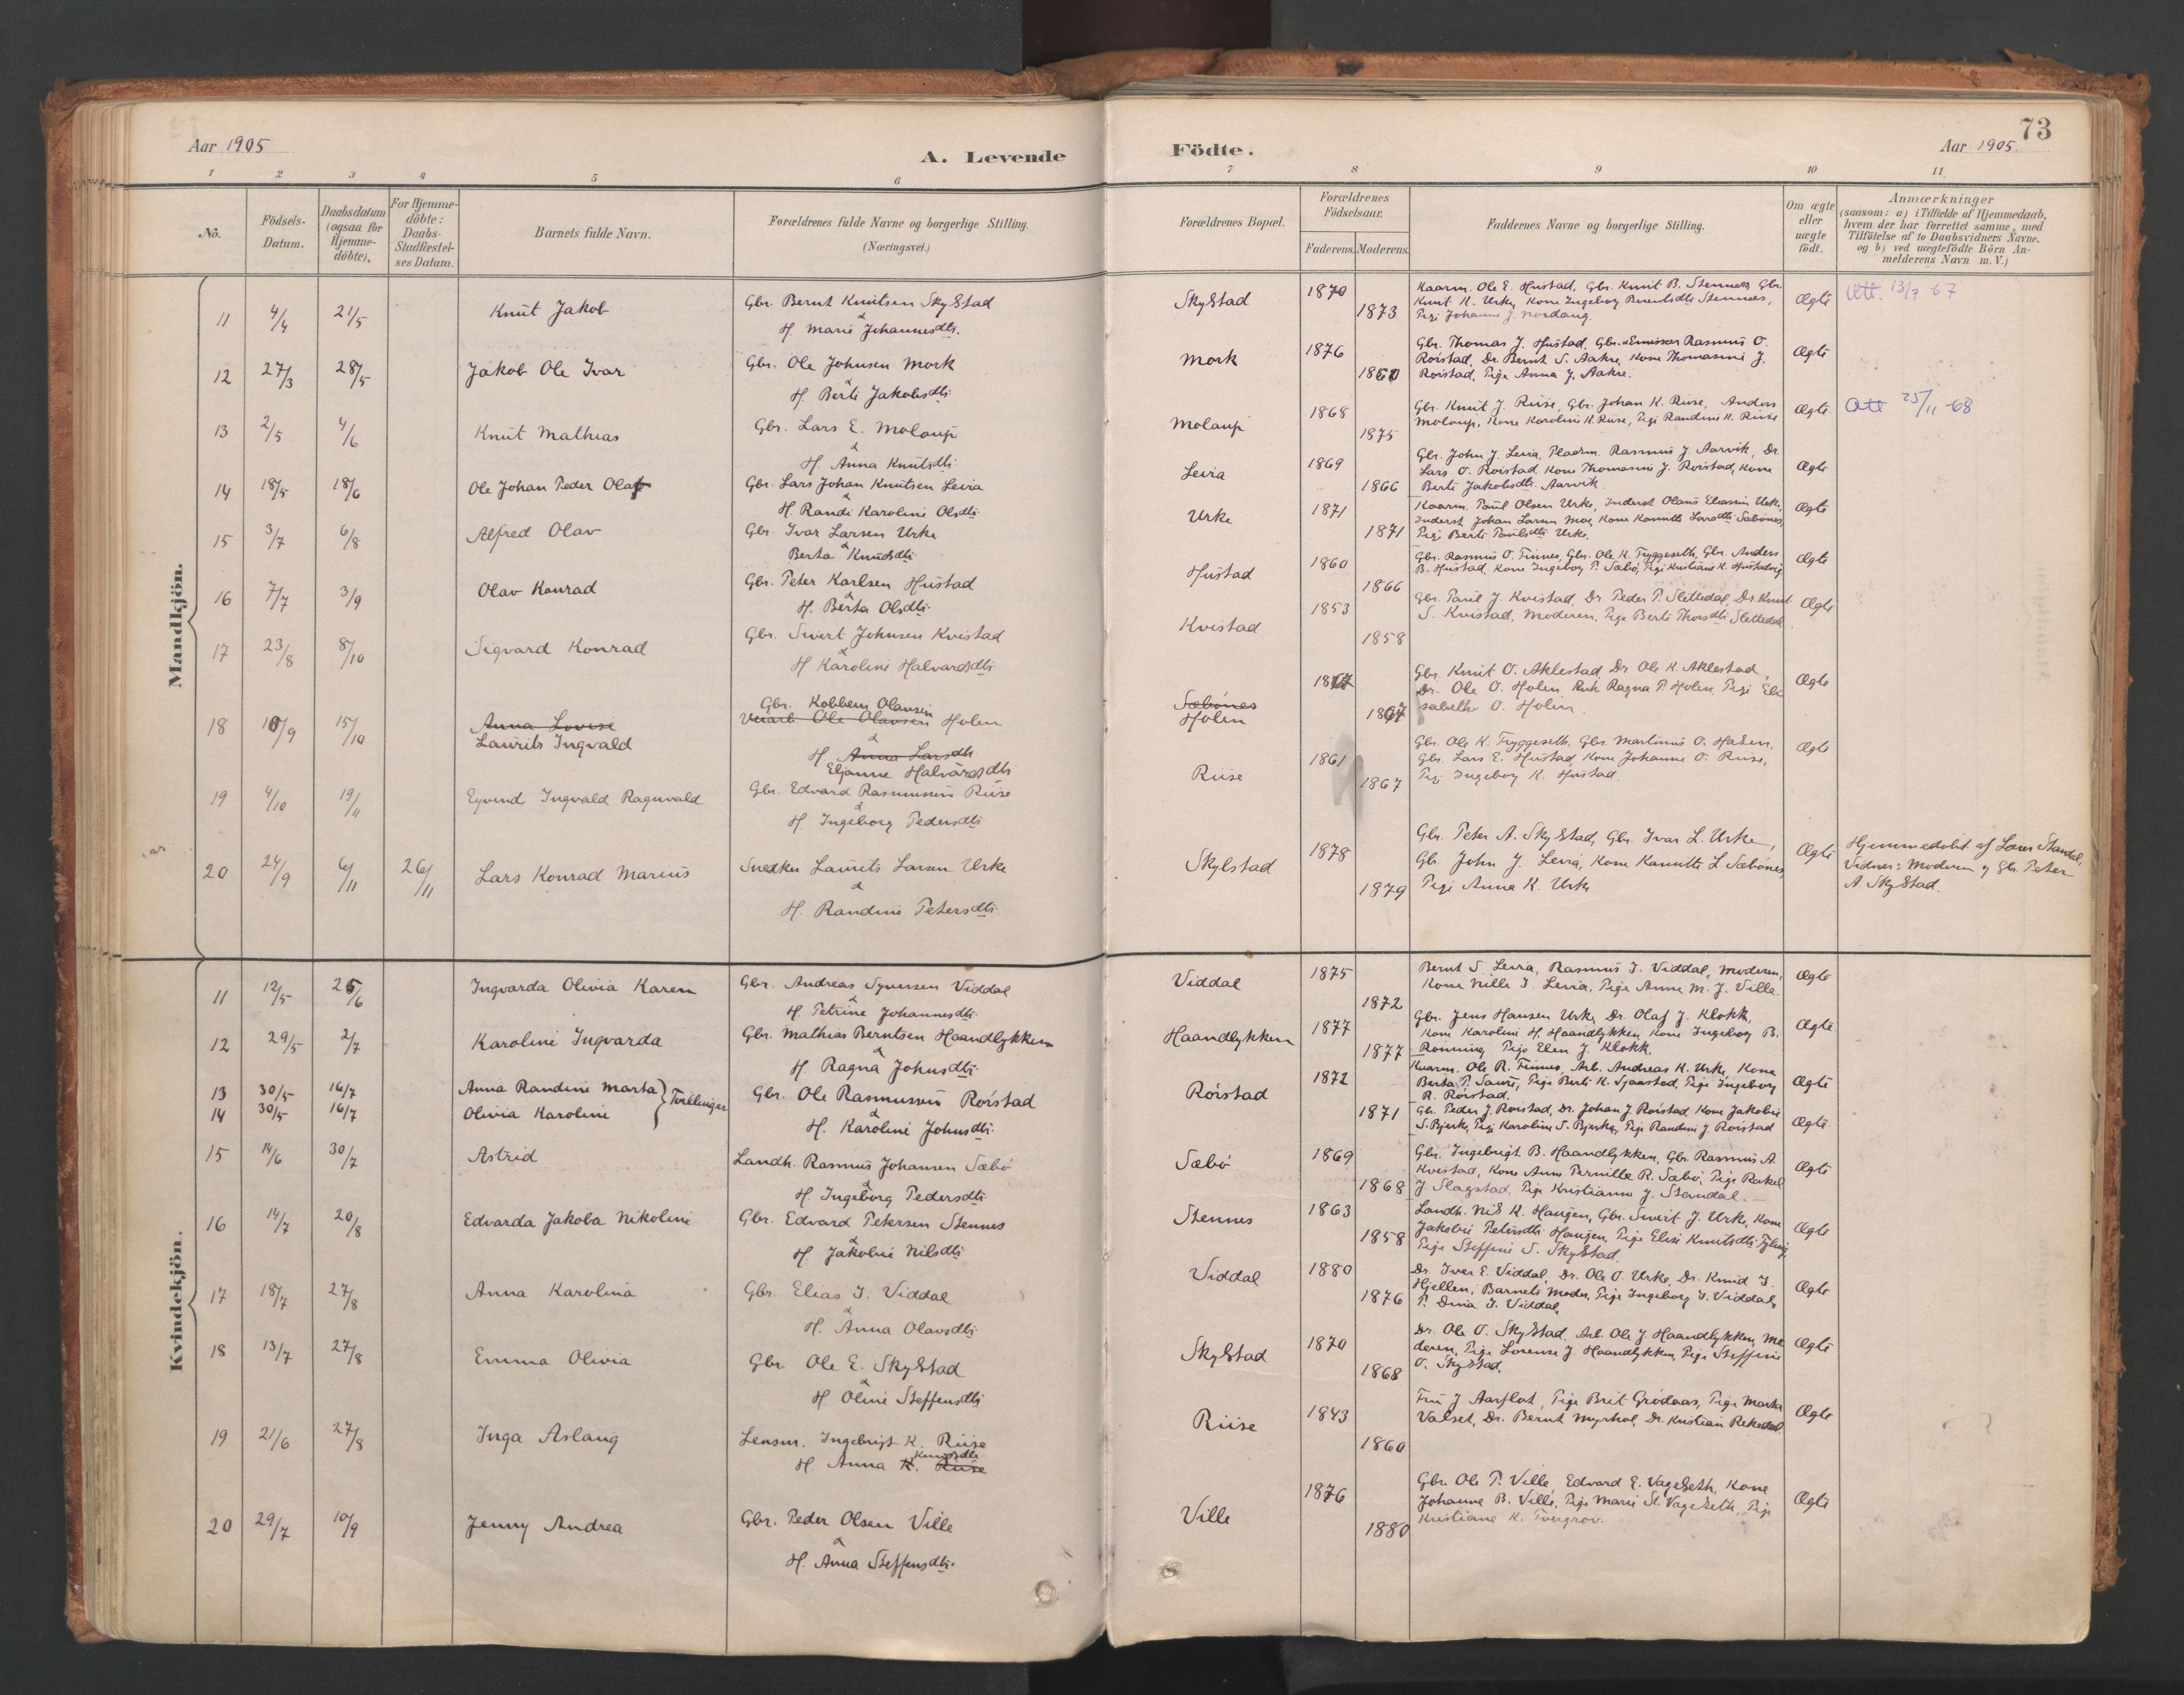 73
Aar 1905
A. Levende
Födte.
Aar 1905.
1 2 3 4 5 6 7 8 9 10 11
No.
Födsels-
Datum.
Daabsdatum
(ogsaa for
Hjemme-
döbte).
For Hjemme-
döbte:
Daabs-
Stadfæstel-
ses Datum.
Barnets fulde Navn.
Forældrenes fulde Navne og borgerlige Stilling.
(Næringsvei.)
Forældrenes Bopæl.
Forældrenes
Födselsaar.
Faderens. Moderens.
Faddernes Navne og borgerlige Stilling.
Om ægte
eller
uægte
födt.
Anmærkninger
(saasom: a) i Tilfælde af Hjemmedaab,
hvem der har forrettet samme, med
Tilföielse af to Daabsvidners Navne.
og b) ved uægtefödte Börn An-
melderens Navn m. V.)
Mandkjön.
11 4/4 21/5 Knut Jakob
Gbr. Bernt Knutsen Skylstad
&
H. Marie Johannesdtr.
Skylstad 1870 1873
Kaarm. Ole E. Hustad, Gbr. Knut B. Stennes, Gbr.
Knut K. Urke, Kone Ingeborg Berntsdtr Stennes,
Pige Johanne J. Nordang.
Ægte
Att. 13/7 67
12 27/3 28/5 Jakob Ole Ivar
Gbr. Ole Johnsen Mork
&
H. Berte Jakobsdtr.
Mork 1876 1860
Gbr. Thomas J. Hustad, Gbr. & Emissær Rasmus O.
Roristad, Dr. Bernt S. Aakre, Kone Thomasine J.
Roristad, Pige Anna J. Aakre.
Ægte
13 2/5 4/6 Knut Mathias
Gbr. Lars E. Molaup
&
H. Anna Knutsdtr.
Molaup 1868 1875
Gbr. Knut J. Riise, Gbr. Johan K. Riise, Anders
Molaup, Kone Karoline K. Riise, Pige Randine K. Riise
Ægte
Att 25/11 -68
14 18/5 18/6 Ole Johan Peder Olaf
Gbr. Lars Johan Knutsen Leira
&
H. Randi Karoline Olsdtr.
Leira 1869 1866
Gbr. John J. Leira, Pladsm. Rasmus J. Aarvik, Dr.
Lars O. Roristad, Kone Thomasine J. Roristad, Kone
Berte Jakobsdtr. Aarvik.
Ægte
15 3/7 6/8 Alfred Olav
Gbr. Ivar Larsen Urke
&
Berta Knudsdtr.
Urke 1871 1871
Kaarm. Paul Olsen Urke, Inderst Olaus Eliassen Urke,
Inderst Johan Larsen Moe, Kone Kanutte Larsdtr Sæbönes,
Pige Berte Paulsdtr Urke.
Ægte
16 7/7 3/9 Olav Konrad
Gbr. Peter Karlsen Hustad
&
H. Berta Olsdtr.
Hustad 1860 1866
Gbr. Rasmus O. Finnes, Gbr. Ole K. Tryggeseth, Gbr. Anders
B. Hustad, Kone Ingeborg P. Sæbö, Pige Kristiane K. Hustadvig
Ægte
17 23/8 8/10 Sigvard Konrad
Gbr. Sivert Johnsen Kvistad
&
H Karoline Halvardsdtr
Kvistad 1853 1858
Gbr. Paul J. Kvistad, Dr. Peder P. Slettedal, Dr Knut
S. Kvistad, Moderen, Pige Berte Thorsdtr Slettedal
Ægte
18 10/9 15/10 Anna Lovise
Laurits Ingvald
Gbr. Kobbeni Olavsen
Ole Olavsen Holen
&
H. Anna Larsdtr
Eljanne Halvardsdtr
Sæbönes
Holen
1867 1867
Gbr. Knut O. Aklestad, Dr. Ole K. Aklestad,
Dr. Ole O. Holen, Ragna P. Holen, Pige Eli-
sabeth O. Holen.
Ægte
19 4/10 19/11 Eyvind Ingvald Ragnvald
Gbr. Edvard Rasmussen Riise
&
H. Ingeborg Pedersdtr.
Riise 1861 1867
Gbr. Ole K. Tryggeseth, Gbr. Martinus O. Haxen,
Gbr. Lars E. Hustad, Kone Johanne O. Riise,
Pige Ingeborg K. Hustad
Ægte
20 24/9 6/11 26/11 Lars Konrad Marius
Snedker Laurits Larsen Urke
&
H. Randine Petersdtr.
Skylstad 1878 1879
Gbr. Peter A. Skylstad, Gbr. Ivar L. Urke,
Gb. John J. Leira, Kone Kanutte L Sæbönes,
Pige Anna K. Urke
Ægte
Hjemmedöbt af Lærer Standal,
Vidner: Moderen og Gbr. Peter
A. Skylstad.
Kvindekjön.
11 12/5 25/6 Ingvarda Olivia Karen
Gbr. Andreas Syversen Viddal
&
H. Petrine Johannesdtr.
Viddal 1875 1872
Bernt S. Leira, Rasmus I. Viddal, Moderen,
Kone Nille I. Leira, Pige Anne M. J. Ville.
Ægte
12 29/5 2/7 Karoline Ingvarda
Gbr. Mathias Berntsen Haandlykken
&
H. Ragna Johnsdtr.
Haandlykken 1877 1877
Gbr. Jens Hansen Urke, Dr. Olaf J. Klokk,
Kone Karoline H. Haandlykken, Kone Ingeborg B.
Rönning, Pige Elen J. Klokk.
Ægte
13 30/5 16/7 Anna Randine Marta
14 30/5 16/7 Olivia Karoline
Tvillinger
Gbr. Ole Rasmussen Röistad
&
H. Karoline Johnsdtr.
Röistad 1872 1871
Kaarm. Ole R. Finnes, Arb. Andreas K. Urke, Kone
Berta P. Saure, Pige Berte K. Sjaastad, Pige Ingeborg
R. Röistad.
Ægte
Gb. Peder J. Röistad, Dr. Johan J. Röistad, Kone Jakobie
S. Bjerk, Pige Karoline S. Bjerke, Pige Randine J. Röistad
Ægte
15 14/6 30/7 Astrid
Landh. Rasmus Johansen Sæbö
&
H. Ingeborg Pedersdtr.
Sæbö 1869 1868
Gbr. Ingebrigt B. Haandlykken, Gbr. Rasmus A.
Kvistad, Kone Anne Pernille R. Sæbö, Pige Rakel
J. Slagstad, Pige Kristianne J. Standal.
Ægte
16 14/7 20/8 Edvarda Jakoba Nikoline
Gbr. Edvard Petersen Stennes
&
H. Jakobie Nilsdtr
Stennes 1863 1858
Landh. Nils K. Haugen, Gbr. Sivert J. Urke, Kone
Jakobie Petersdtr Haugen, Pige Elise Knutsdtr
Pige Steffine S. Skylstad
Ægte
17 18/7 27/8 Anna Karolina
Gbr. Elias I. Viddal
&
H. Anna Olavsdtr.
Viddal 1880 1876
Dr. Iver E. Viddal, Dr. Ole O. Urke, Dr. Knud I.
Hjellen, Barnets Moder, Pige Ingeborg I. Viddal,
P. Dina I. Viddal.
Ægte
18 13/7 27/8 Emma Olivia
Gbr Ole E. Skylstad
&
H Oline Steffensdtr
Skylstad 1870 1868
Dr. Ole O. Skylstad, Arb. Ole J. Haandlykken, Mo-
deren, Pige Lorense J. Haandlykken, Pige Steffine
O. Skylstad.
Ægte
19 21/6 27/8 Inga Aslaug
Lensm. Ingebrigt K. Riise
Knudsdtr
H. Anna K. Riise
Riise 1843 1860
Fru J Aarflot, Pige Brit Grödaas, Pige Marta
Valset, Dr. Bernt Myrhol, Dr. Kristian Rekedal
Ægte
20 29/7 10/9 Jenny Andrea
Gbr. Peder Olsen Ville
&
H. Anna Steffensdtr.
Ville 1876 1880
Gbr. Ole P. Ville, Edvard E. Vagseth, Kone
Johanne B. Ville, Pige Marie St. Vagseth, Pige
Kristiane K. Tvergrov.
Ægte